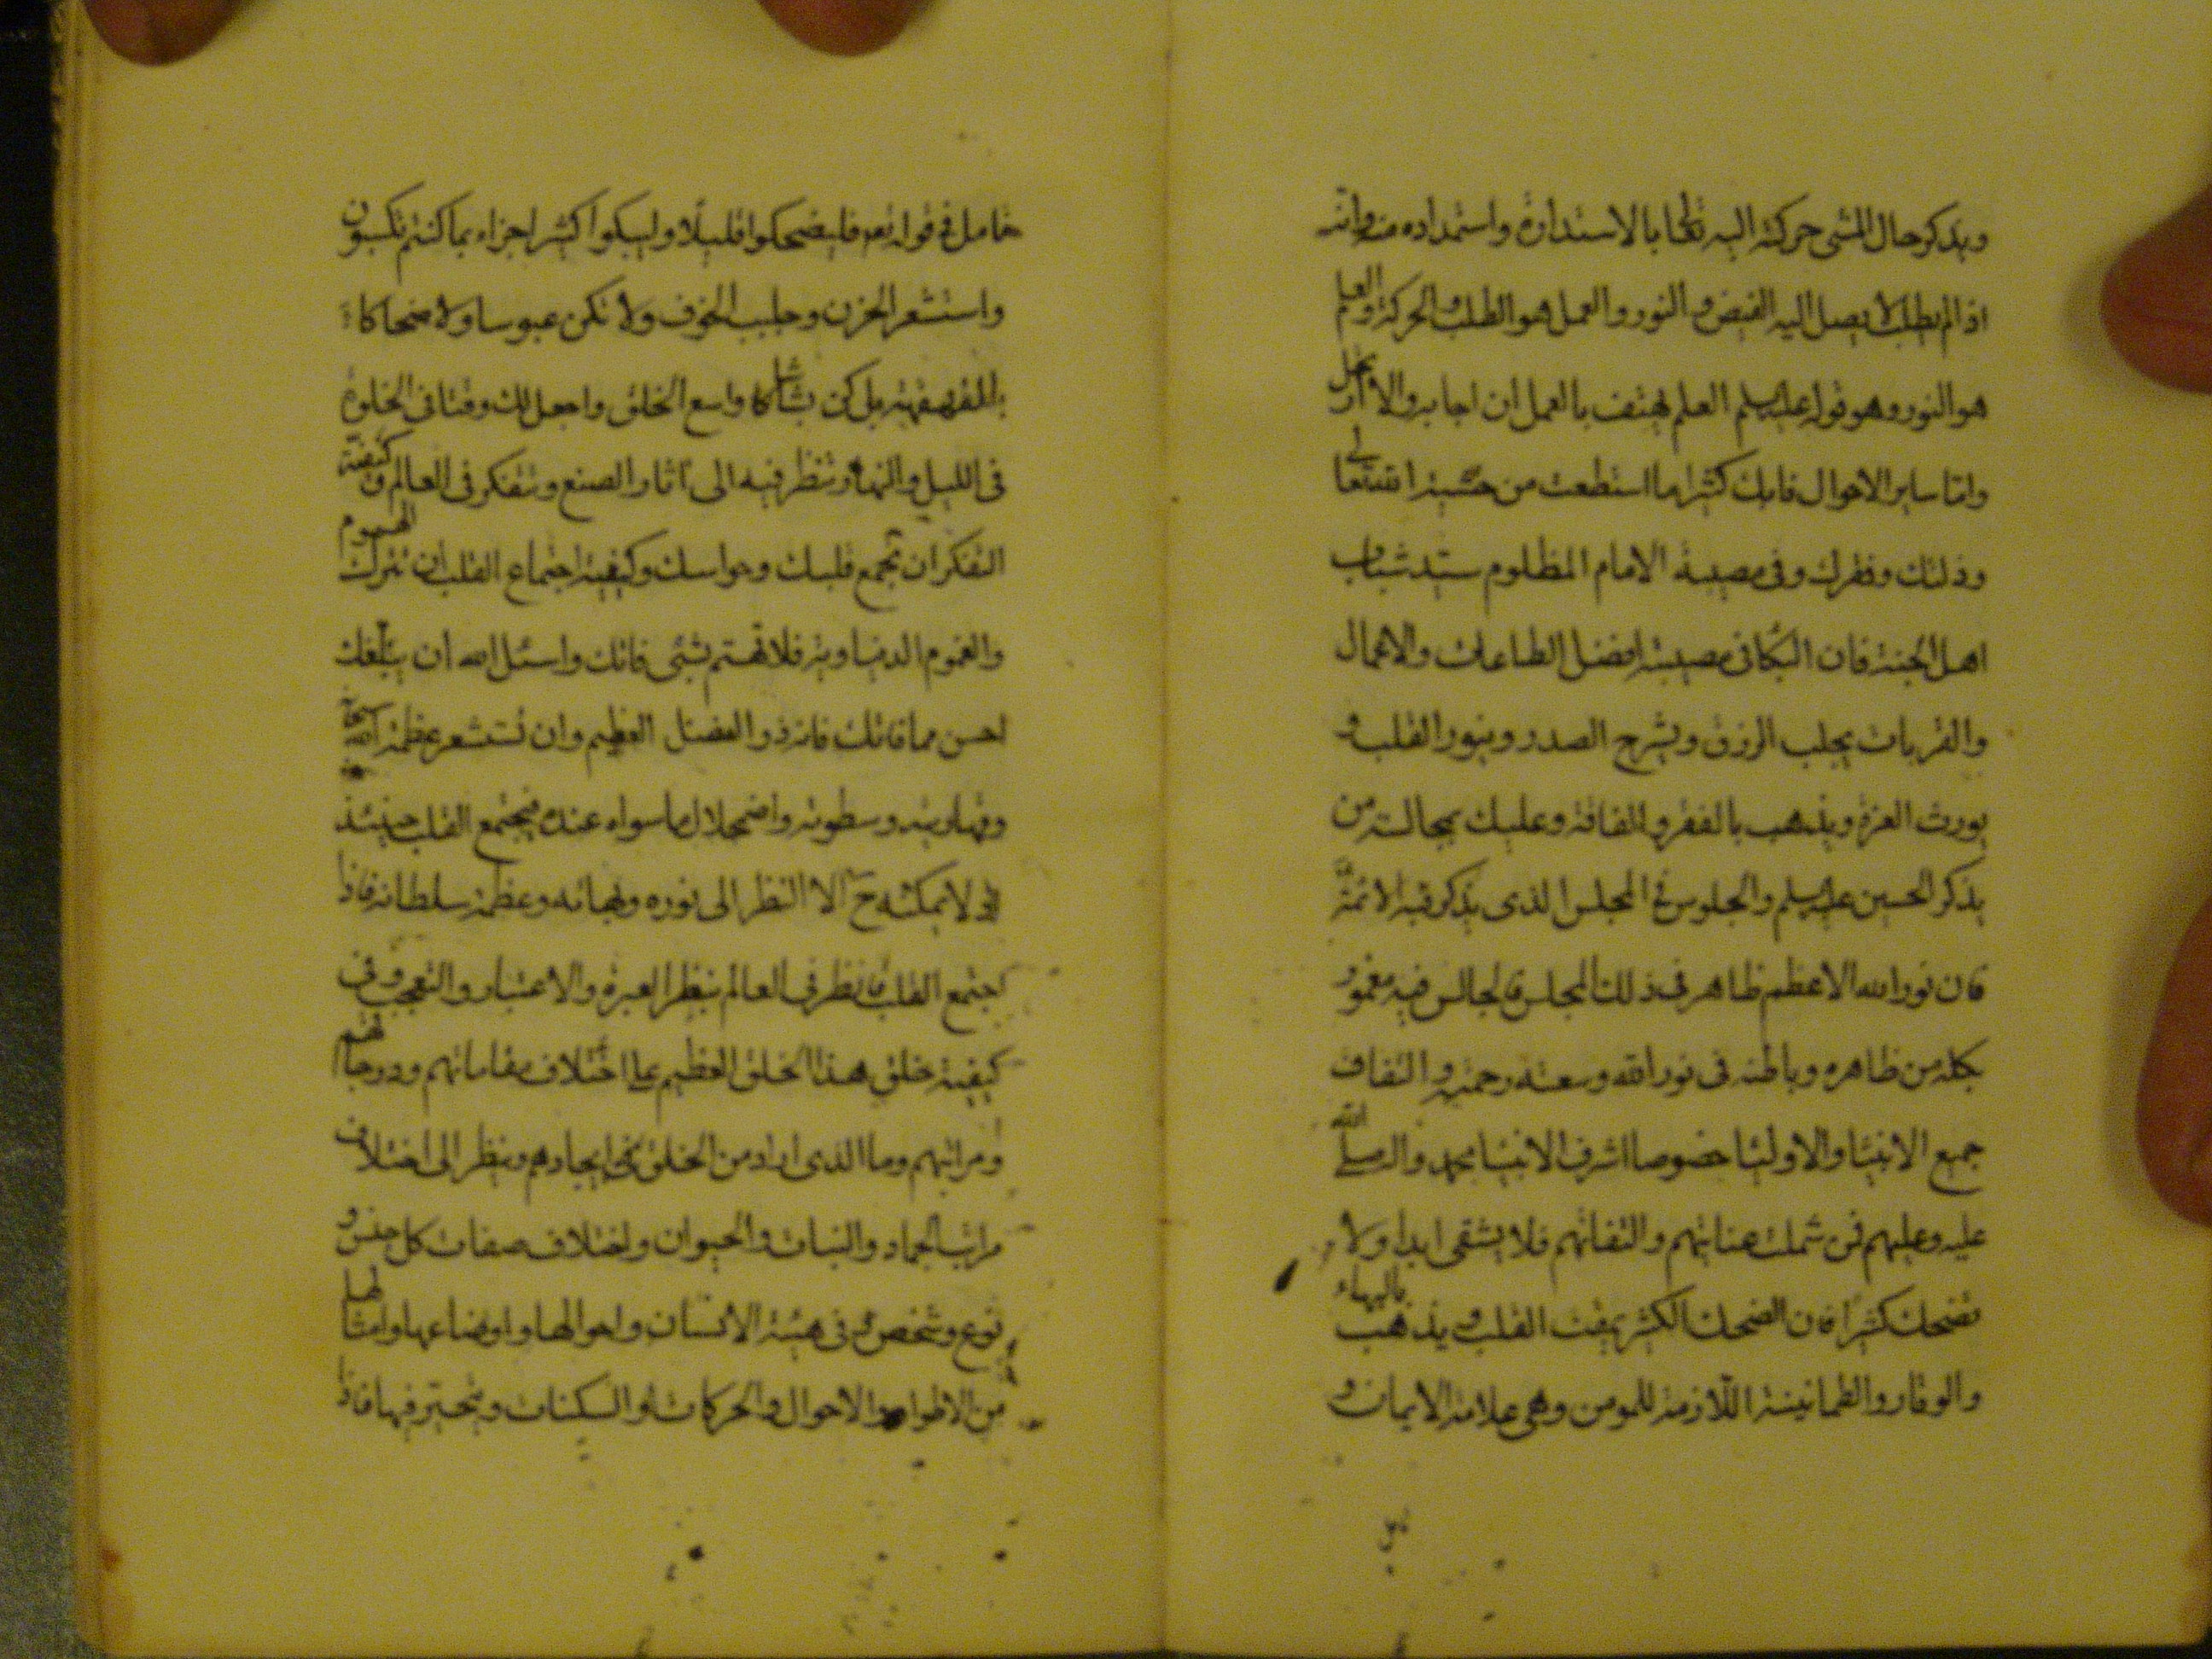 ويذكر حال المشى حركته اليه تعالى بالاستدارة واستمداده منه وانه
اذا لم يطلب لا يصل اليه الفيض والنور والعمل هو الطلب والحركة والعلم
هو النور وهو قوله عليه سلم العلم يهتف بالعمل ان اجابه والا ارتحل
واما ساير الاحوال فابك كثيرا ما استطعت من خشية الله تعالى
وذلتك وفقرك وفى مصيبة الامام المظلوم سيد شباب
اهل الجنة فان البكا فى مصيبته افضل الطاعات والاعمال
والقربات يجلب الرزق ويشرح الصدر وينور القلب و
يورث العزة ويذهب بالفقر والفاقة وعليك بمجالسة من
يذكر الحسين عليه سلم والجلوس فى المجلس الذى يذكر فيه الائمة
فان نور الله الاعظم ظاهر فى ذلك المجلس فالجالس فيه مغمور
بكله من ظاهره وباطنه فى نور الله وسعة رحمته والتفات
جميع الانبيا والاوليا خصوصا اشرف الانبيا محمد واله صلى الله
عليه وعليهم فمن شملت عنايتهم والتفاتهم فلا يشقى ابدا ولا
تضحك كثيرا فان الضحك الكثير يميت القلب ويذهب بالبهاء
والوقار والطمانينة اللازمة للمومن وهى علامة الايمان و
تامل فى قوله تعالى فليضحكوا قليلا وليبكوا كثيرا جزاء بما كنتم تكسبون
واستشعر الحزن وجلبب الخوف ولا تكن عبوسا ولا ضحاكا
بالقهقهة بل كن بشاشا واسع الخلق واجعل لك وقتا فى الخلوة
فى الليل والنهار تنظر فيه الى اثار الصنع وتتفكر فى العالم وكيفية
التفكر ان تجمع قلبك وحواسك وكيفية اجتماع القلب ان تترك الهموم
والغموم الدنياوية فلا تهتم بشئ فاتك واسئل الله ان يبلغك
احسن مما فاتك فانه ذو الفضل العظيم وان تستشعر عظمة الله
وقهاريته وسطوته واضمحلال ما سواه عنده فيجتمع القلب حينئذ
لا يمكنه ح الا النظر الى نوره وبهائه وعظمة سلطانه فاذا
اجتمع القلب فانظر فى العالم بنظر العبرة والاعتبار والتعجب وفى
كيفية خلق هذا الخلق العظيم على اختلاف مقاماتهم ودرجاتهم
ومراتبهم وما الذى اراد من الخلق فى ايجادهم وينظر الى اختلاف
مراتب الجماد والنبات والحيوان واختلاف صفات كل جنس و
نوع وشخص فى هيئة الانسان واحوالها واوضاعها وامثالها
من الاطوار والاحوال والحركات والسكنات ويتحير فيها فاذا